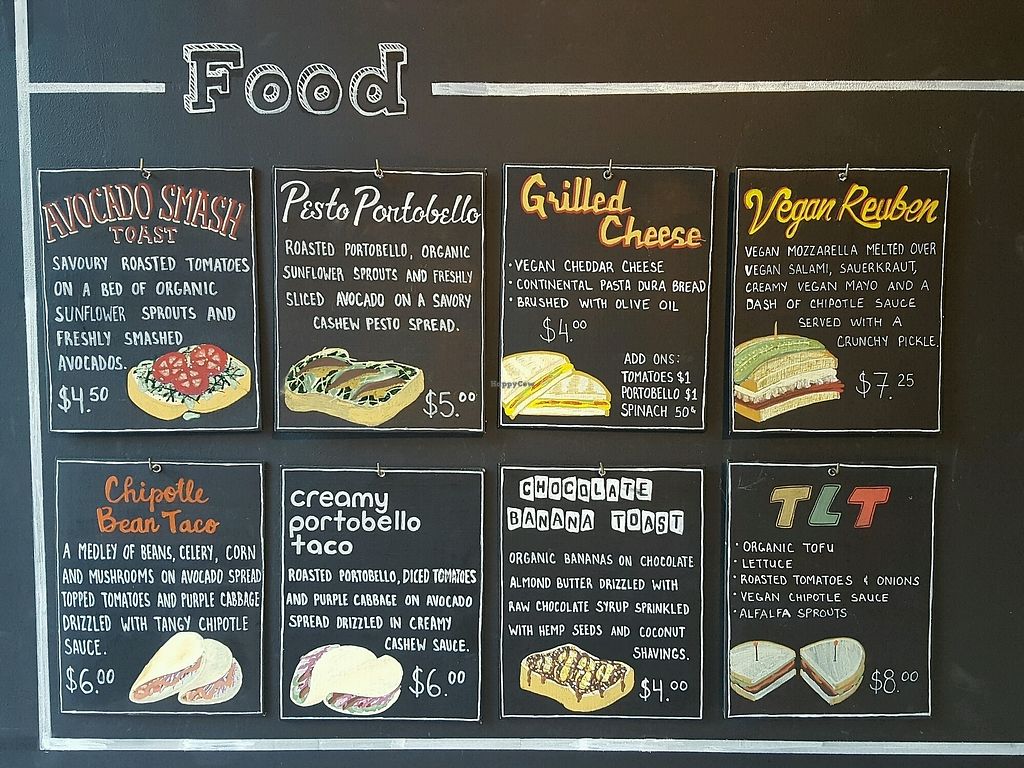 Food
AVOCADO SMASH
TOAST
SAVOURY ROASTED TOMATOES
ON A BED OF ORGANIC
SUNFLOWER SPROUTS AND
FRESHLY SMASHED
AVOCADOS.
$4.50
Pesto Portobello
ROASTED PORTOBELLO, ORGANIC
SUNFLOWER SPROUTS AND FRESHLY
SLICED AVOCADO ON A SAVORY
CASHEW PESTO SPREAD.
$5.00
Grilled
Cheese
· VEGAN CHEDDAR CHEESE
· CONTINENTAL PASTA DURA BREAD
· BRUSHED WITH OLIVE OIL
$4.00
ADD ONS:
TOMATOES $1
PORTOBELLO $1
SPINACH 50¢
HappyCow
Vegan Reuben
VEGAN MOZZARELLA MELTED OVER
VEGAN SALAMI, SAUERKRAUT,
CREAMY VEGAN MAYO AND A
DASH OF CHIPOTLE SAUCE
SERVED WITH A
CRUNCHY PICKLE.
$7.25
Chipotle
Bean Taco
A MEDLEY OF BEANS, CELERY, CORN
AND MUSHROOMS ON AVOCADO SPREAD
TOPPED TOMATOES AND PURPLE CABBAGE
DRIZZLED WITH TANGY CHIPOTLE
SAUCE.
$6.00
creamy
portobello
taco
ROASTED PORTOBELLO, DICED TOMATOES
AND PURPLE CABBAGE ON AVOCADO
SPREAD DRIZZLED IN CREAMY
CASHEW SAUCE.
$6.00
CHOCOLATE
BANANA TOAST
ORGANIC BANANAS ON CHOCOLATE
ALMOND BUTTER DRIZZLED WITH
RAW CHOCOLATE SYRUP SPRINKLED
WITH HEMP SEEDS AND COCONUT
SHAVINGS.
$4.00
TLT
· ORGANIC TOFU
· LETTUCE
· ROASTED TOMATOES & ONIONS
· VEGAN CHIPOTLE SAUCE
· ALFALFA SPROUTS
$8.00